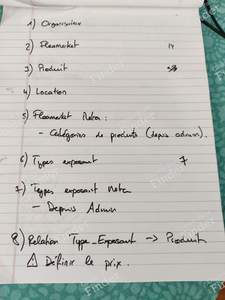 1) Organisateur
2) Fleamarket 14
3) Produit
4) Location
5) Fleamarket Meta :
- Catégories de produits (depuis admin).
6) Types exposant 7
7) Types exposant Meta
- Depuis Admin
8) Relation Type_Exposant → Produit
⚠ Définir le prix.